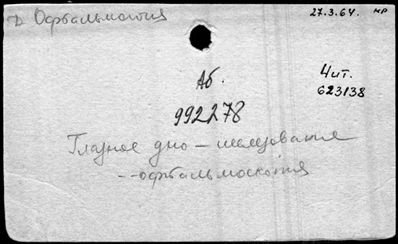 D Офтальмология
27.3.64. нр
Аб.
Чит.
623138
992278
Глазное дно – исследование
– офтальмоскопия